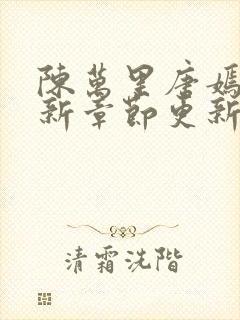 陳萬里唐嫣
新章節更新
清霜洗階